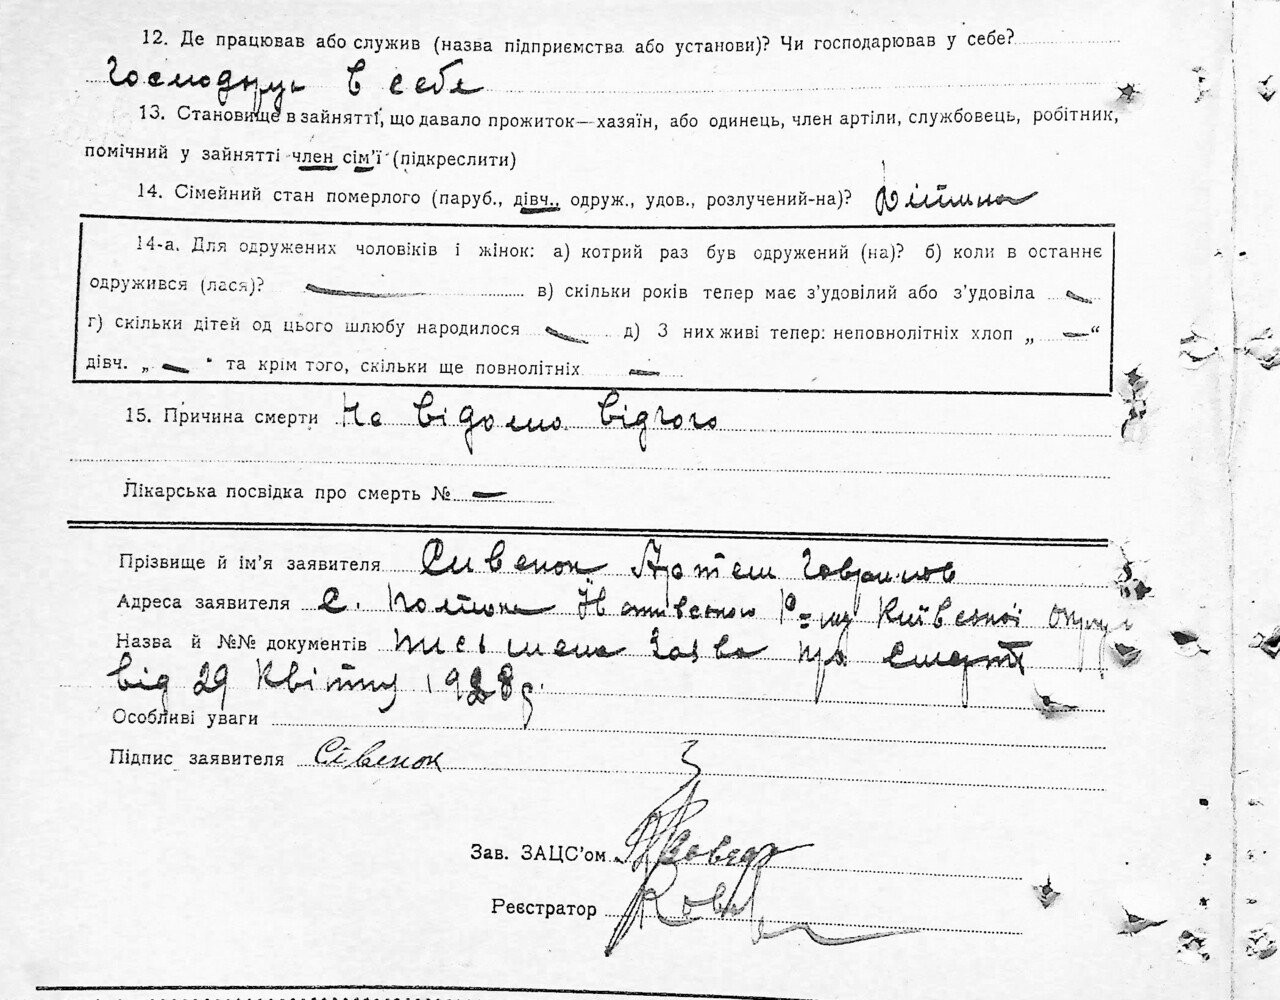 12. Де працював або служив (назва підприємства або установи)? Чи господарював у себе?
в себе
13. Становище в зайнятті, що давало прожиток—хазяїн, або одинець, член артіли, службовець, робітник,
помічний у зайнятті член сім'ї (підкреслити)
14. Сімейний стан померлого (паруб., дівч., одруж., удов., розлучений-на)? Дітина
14-а. Для одружених чоловіків і жінок: а) котрий раз був одружений (на)? б) коли в останнє
одружився (лася)? — в) скільки років тепер має з'удовілий або з'удовіла —
г) скільки дітей од цього шлюбу народилося — д) З них живі тепер: неповнолітніх хлоп „ — “
дівч. „ — “ та крім того, скільки ще повнолітніх —
15. Причина смерти Не відомо відчого
Лікарська посвідка про смерть № —
Прізвище й ім'я заявителя Сивенок Артем Гаврилов
Адреса заявителя с. Київської
Назва й №№ документів письмена заява про смерть
від 29 квітня 1928 р.
Особливі уваги
Підпис заявителя Сівенок
Зав. ЗАЦС'ом
Реєстратор